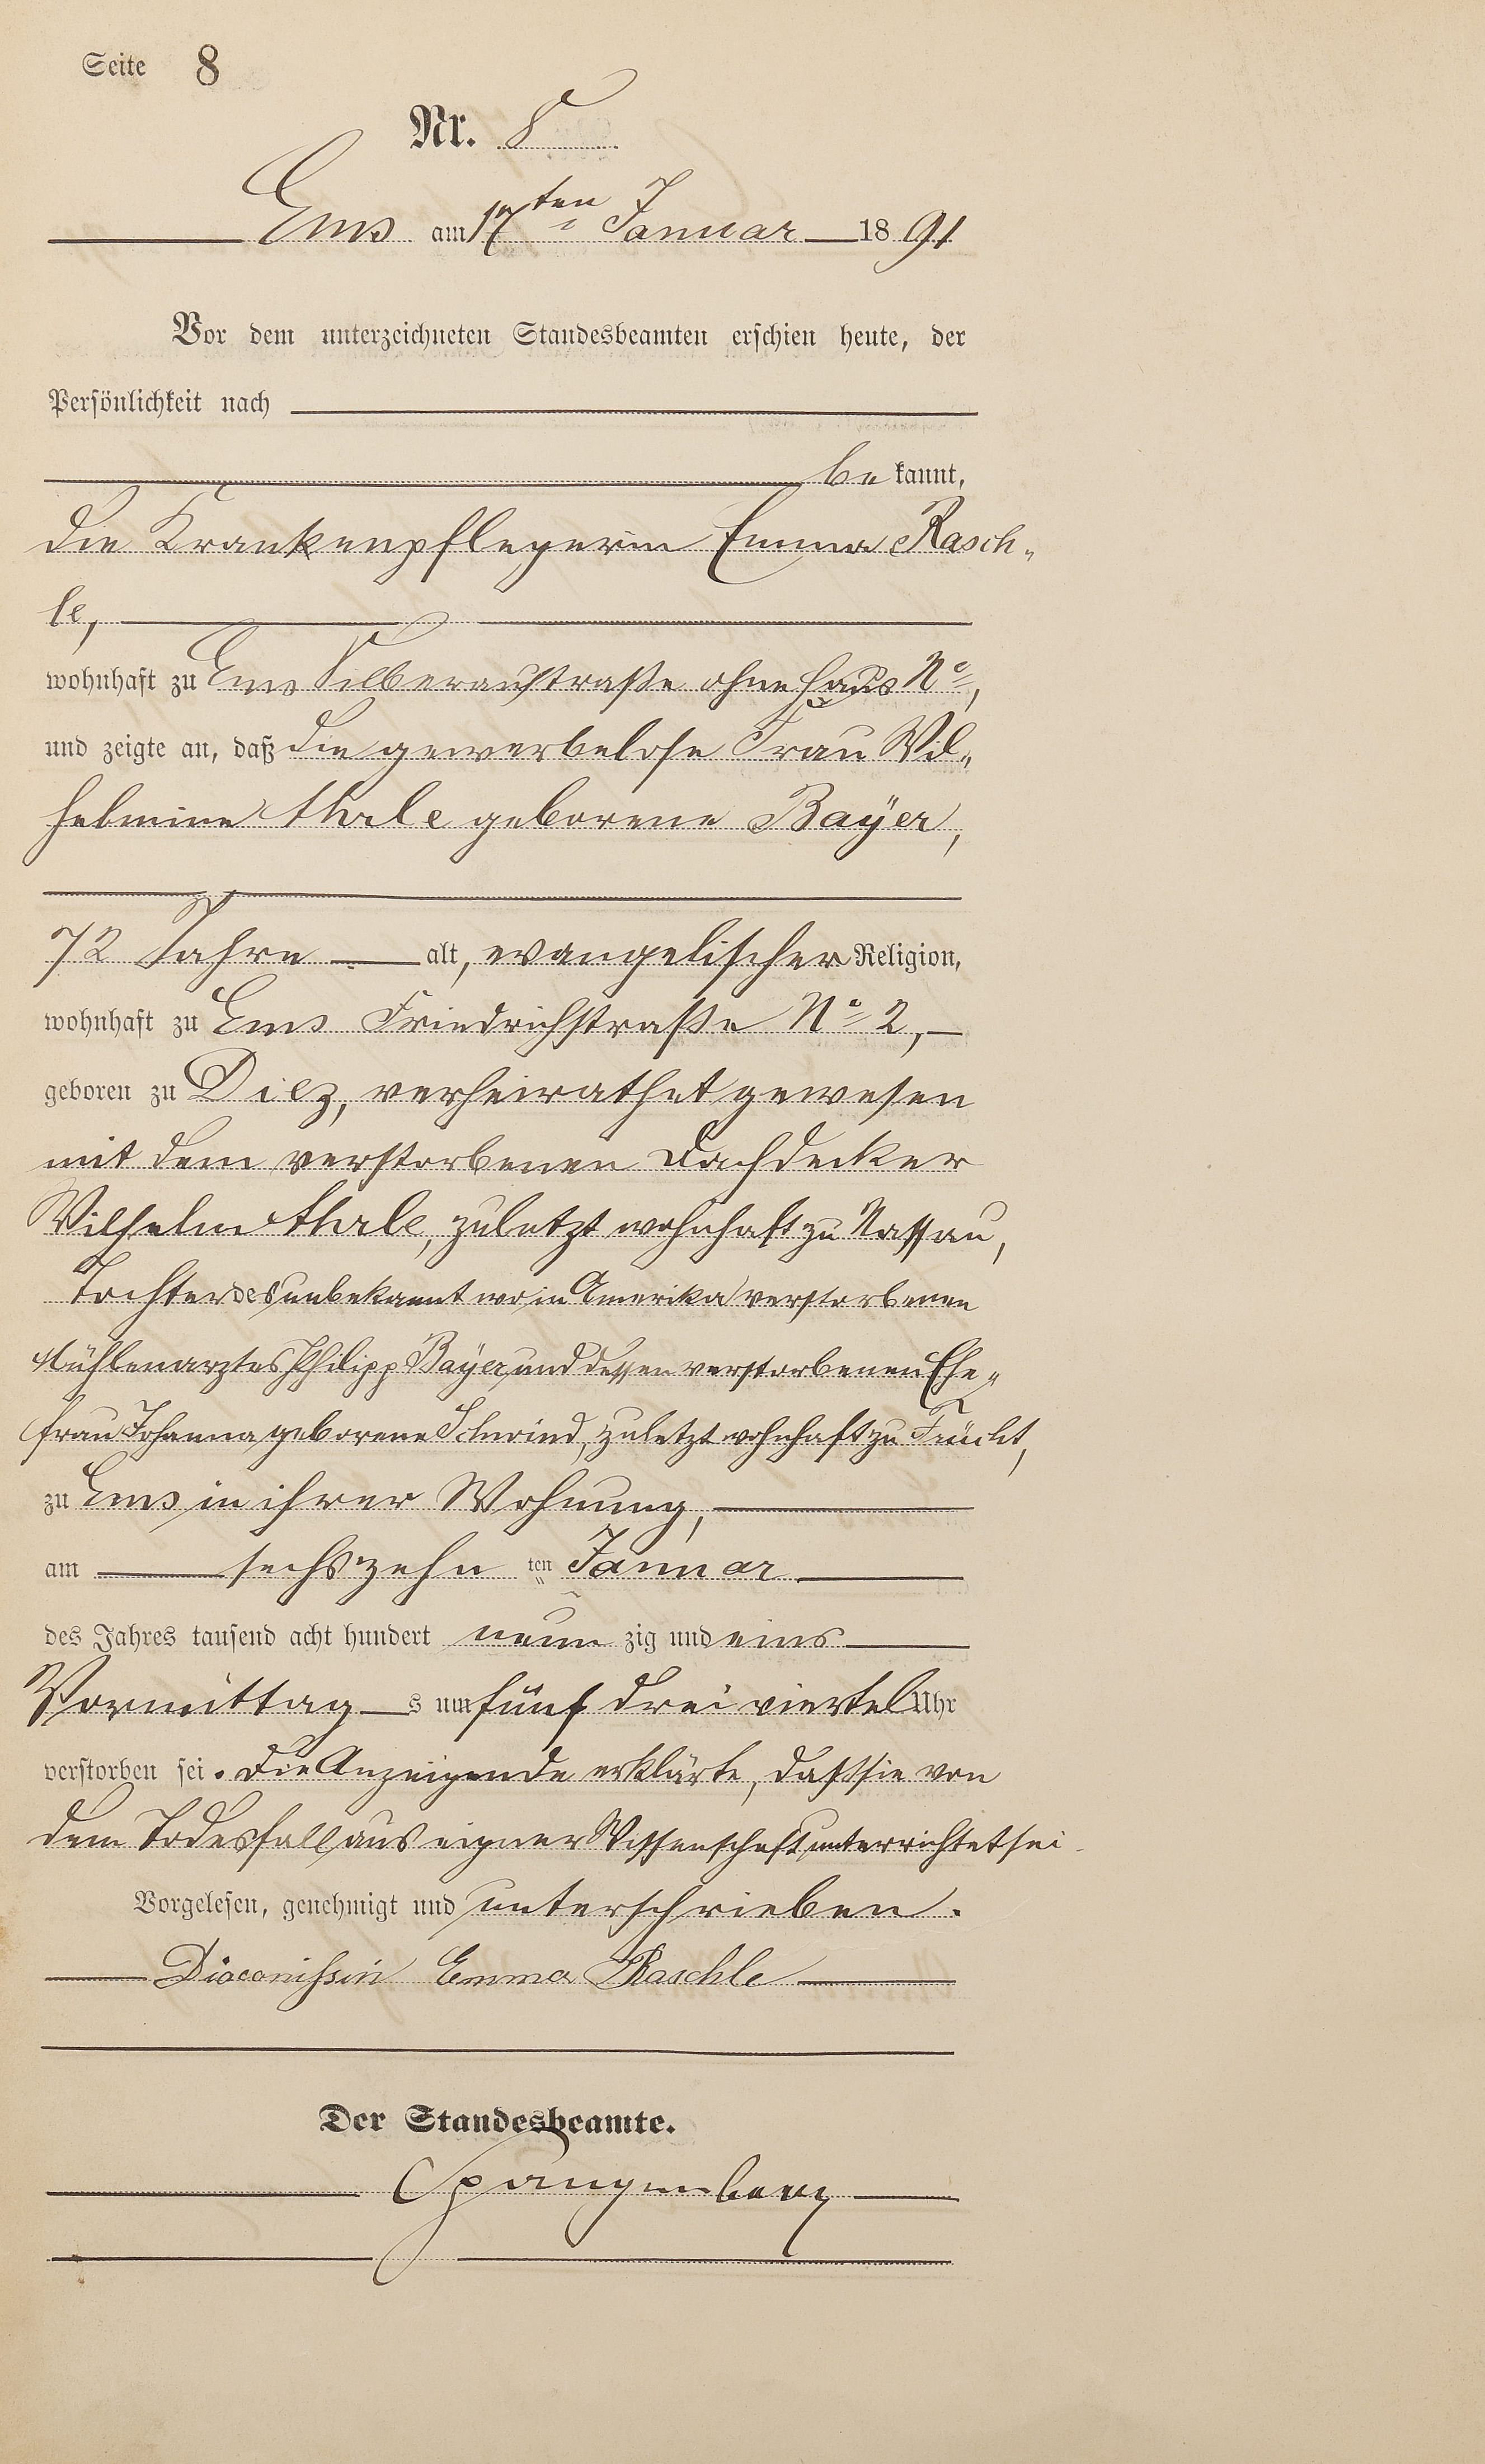 Seite 8
Nr. 8
Ems am 17ten Januar 1891
Vor dem unterzeichneten Standesbeamten erschien heute, der
Persönlichkeit nach
bekannt,
die Krankenpflegerin Emma Rasch-
le,
wohnhaft zu Ems Silberaustraße ohne Haus No,
und zeigte an, daß die gewerbelose Frau Wil-
helmine geborene Baÿer,
72 Jahre alt, evangelischer Religion,
wohnhaft zu Ems Friedrichstraße No 2,
geboren zu Diez, verheirathet gewesen
mit dem verstorbenen Dachdecker
Wilhelm, zuletzt wohnhaft zu Nassau,
Tochter des unbekannt wo in Amerika verstorbenen
Mühlenarztes Philipp Baÿer und dessen verstorbenen Ehe-
frau Johanna geborene Schwind, zuletzt wohnhaft zu Frücht,
zu Ems in ihrer Wohnung,
am sechszehn ten Januar
des Jahres tausend acht hundert neun zig und eins
Vormittag s um fünf drei viertel Uhr
verstorben sei. Die Anzeigende erklärte, daß sie von
dem Todesfall aus eigner Wissenschaft unterrichtet sei.
Vorgelesen, genehmigt und unterschrieben.
Diaconissin Emma Raschle
Der Standesbeamte.
Spangenberg